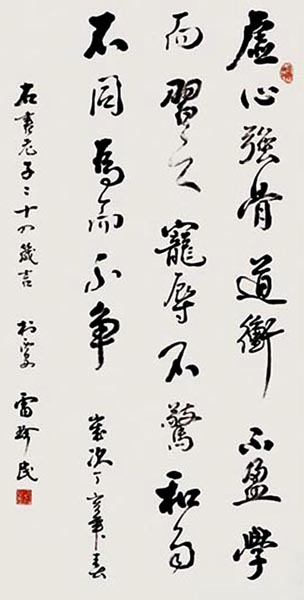 虛心强骨道衝不盈學
而習之寵辱不驚和而
不同為而不争 歲次丁亥年春
右書老子二十四箴言 雷珍民